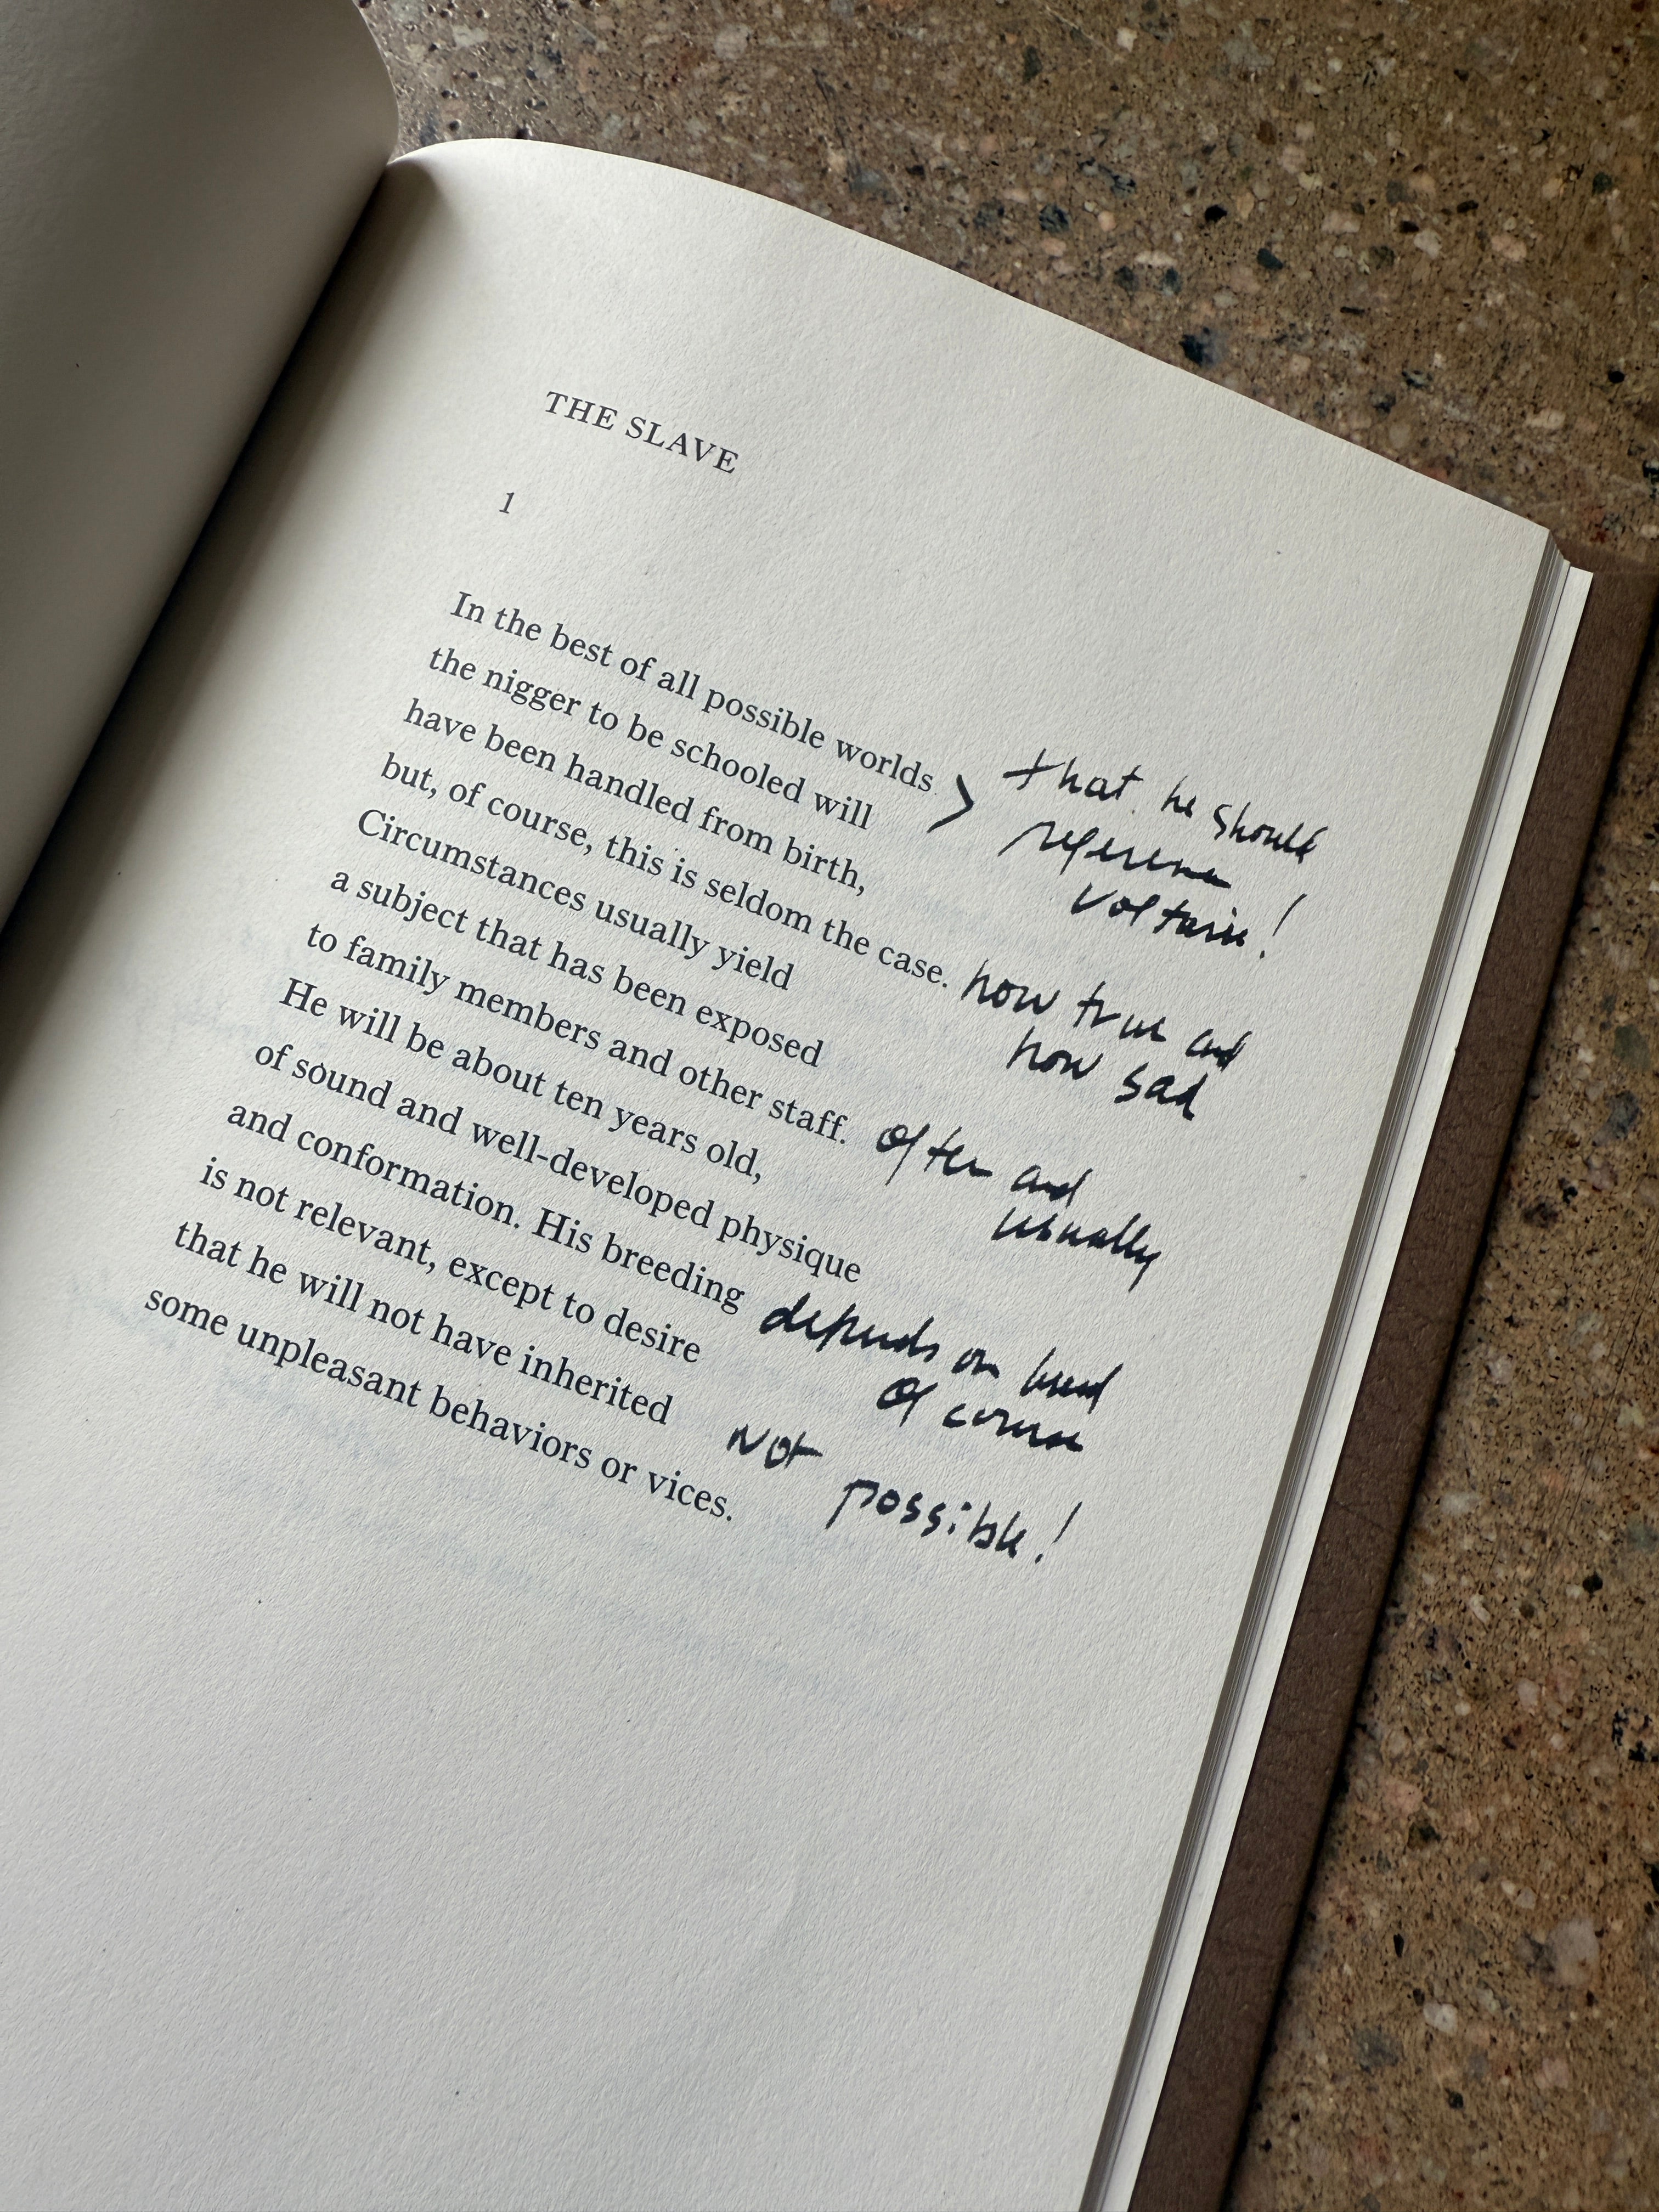 THE SLAVE
1
In the best of all possible worlds
the nigger to be schooled will
have been handled from birth,
but, of course, this is seldom the case.
Circumstances usually yield
a subject that has been exposed
to family members and other staff.
He will be about ten years old,
of sound and well-developed physique
and conformation. His breeding
is not relevant, except to desire
that he will not have inherited
some unpleasant behaviors or vices.
that he should
reference
Voltaire!
how true and
how sad
often and
usually
depends on breed
of course
Not
possible!